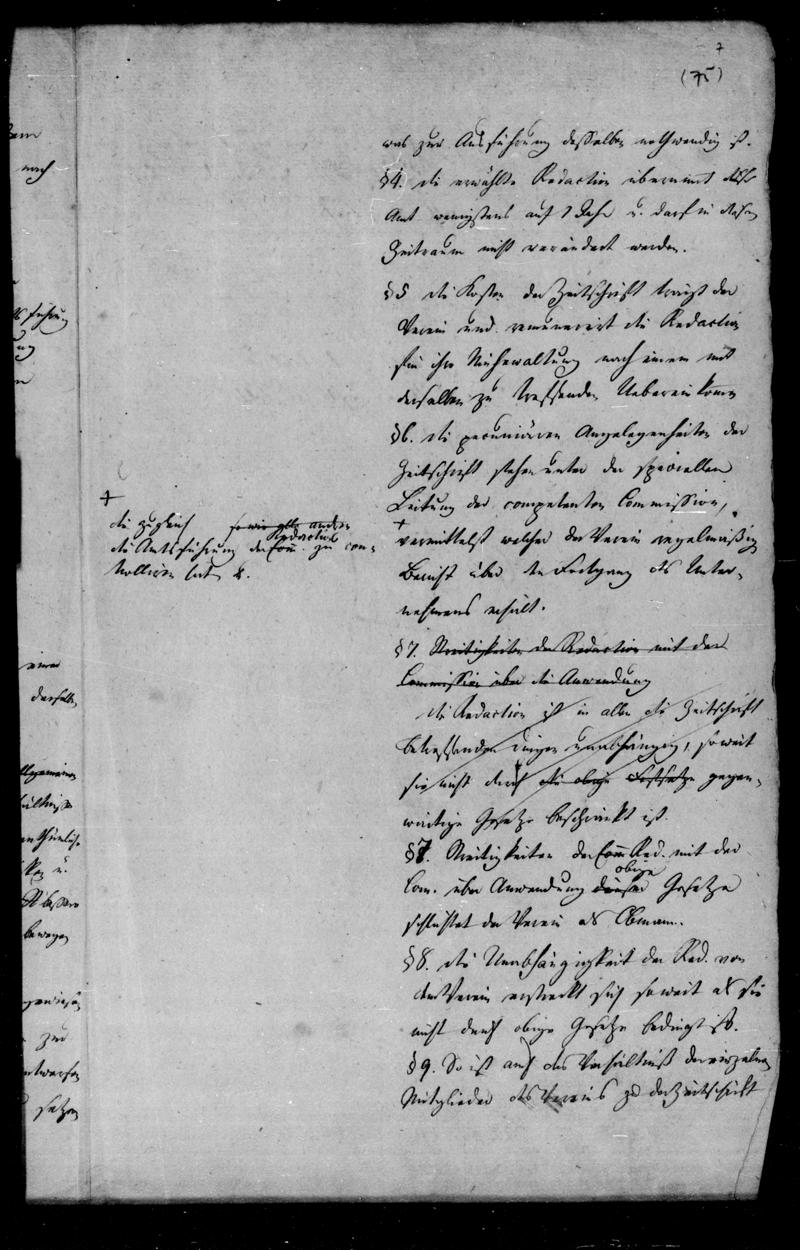 7
(75)
was zur Ausführung desselben nothwendig ist.
§4. die erwählte Redaction übernimmt dieses
Amt wenigstens auf 1 Jahr u. darf in diesem
Zeitraum nicht verändert werden.
§5 die Kosten der Zeitschrift trägt der
Verein und remunerirt die Redaction
für ihre Mühewaltung nach einem mit
derselben zu treffenden Uebereinkommen
§6. die pecuniären Angelegenheiten der
Zeitschrift stehen unter der speciellen
Leitung der competenten Commission,
+ vermittelst welcher der Verein regelmäßig
Bericht über den Fortgang des Unter-
nehmens erhält.
+
die zugleich sowie alle andere
die Amtsführung der Com. Redaction zu con-
trolliren hat &.
§7. Streitigkeiten der Redaction mit der
Commission über die Anwendung
die Redaction ist in allen die Zeitschrift
betreffenden Dingen unabhängig, soweit
sie nicht durch die obige Festsetze gegen-
wärtige Gesetze beschränkt ist.
§7. Streitigkeiten der Com Red. mit der
Com. über Anwendung dieser obige Gesetze
schlichtet der Verein als Obmann.
§8. die Unabhängigkeit der Red. von
dem Verein erstreckt sich so weit als sie
nicht durch obige Gesetze bedingt ist.
§9. So ist auch das Verhältniß der einzelnen
Mitglieder des Vereins zu der Zeitschrift
nach
einer
derselben
allgemeinen
u.
bessere
bewegen
zur
entworfen
setzen